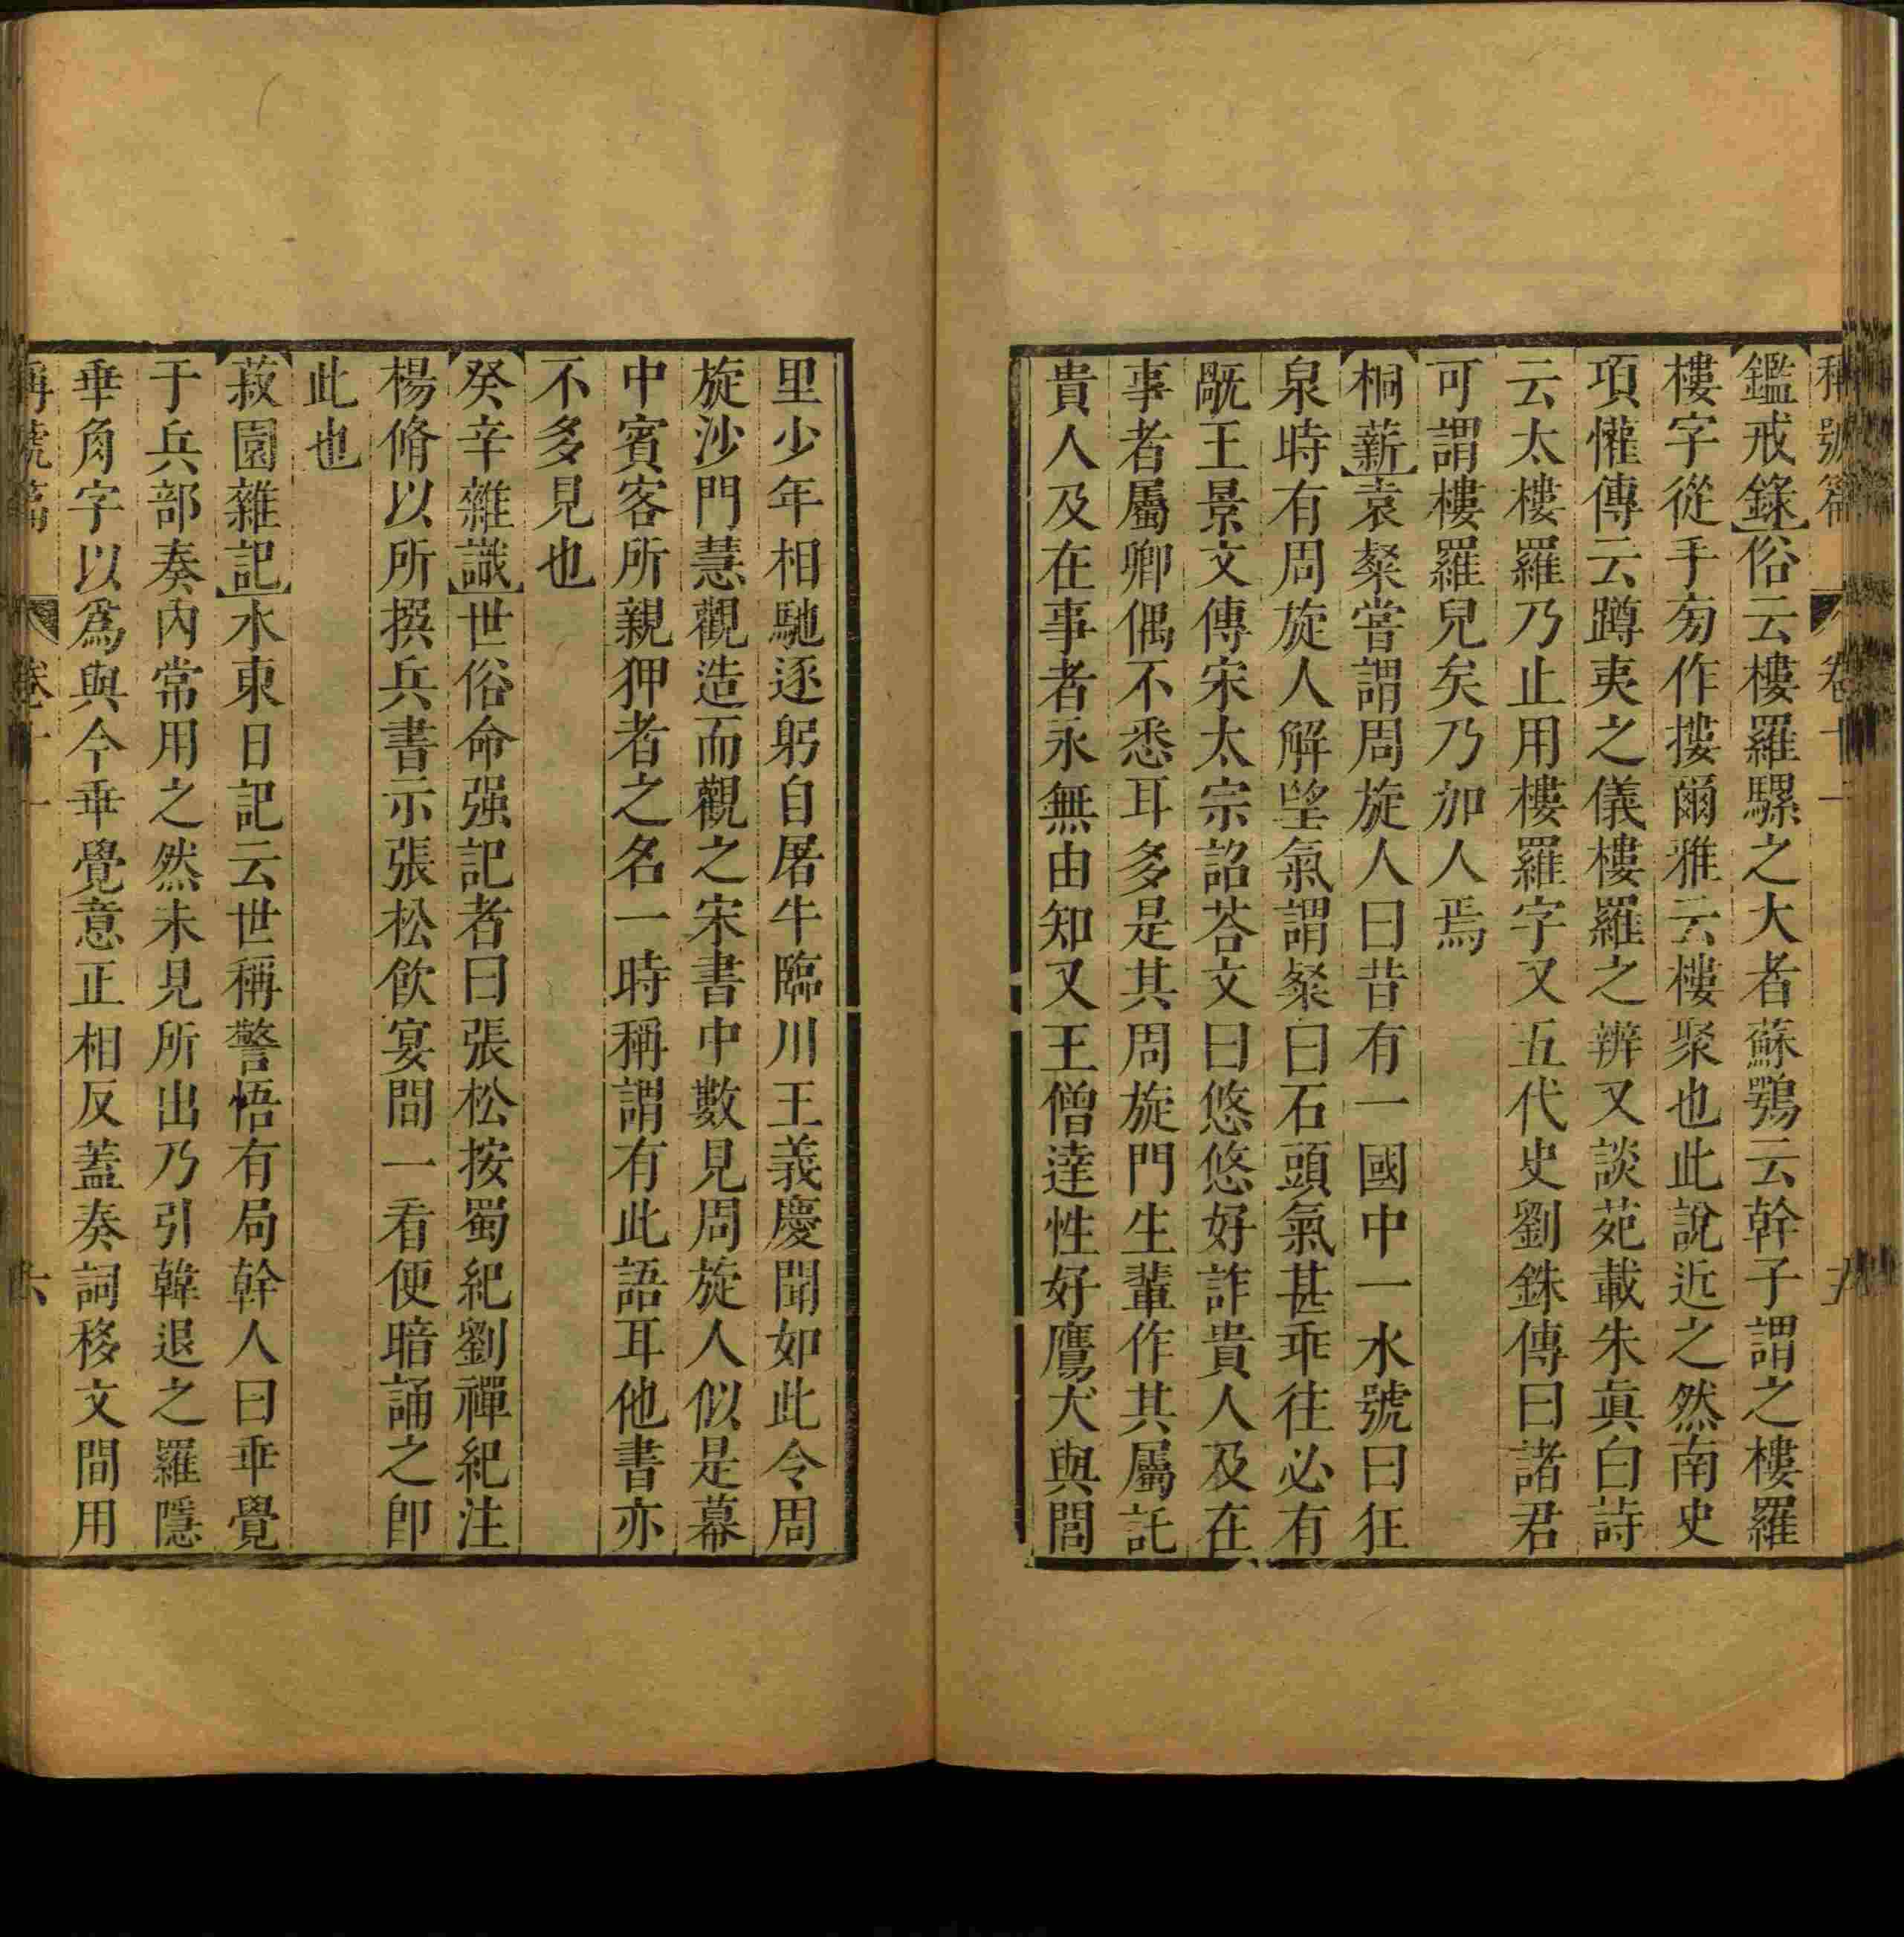 稱號篇 卷十一
鑑戒錄俗云樓羅騾之大者蘇鶚云幹子謂之樓羅
樓字從手旁作摟爾雅云樓聚也此說近之然南史
項懽傳云蹲夷之儀樓羅之辨又談苑載朱眞白詩
云太樓羅乃止用樓羅字又五代史劉銖傳曰諸君
可謂樓羅兒矣乃加人焉
桐薪袁粲嘗謂周旋人曰昔有一國中一水號曰狂
泉時有周旋人解望氣謂粲曰石頭氣甚乖往必有
旤王景文傳宋太宗詔荅文曰悠悠好詐貴人及在
事者屬卿偶不悉耳多是其周旋門生輩作其屬託
貴人及在事者永無由知又王僧達性好鷹犬與閭
里少年相馳逐躬自屠牛臨川王義慶聞如此令周
旋沙門慧觀造而觀之宋書中數見周旋人似是幕
中賓客所親狎者之名一時稱謂有此語耳他書亦
不多見也
癸辛雜識世俗命强記者曰張松按蜀紀劉禪紀注
楊脩以所撰兵書示張松飮宴間一看便暗誦之卽
此也
菽園雜記水東日記云世稱警悟有局幹人曰乖覺
于兵部奏內常用之然未見所出乃引韓退之羅隱
乖角字以爲與今乖覺意正相反蓋奏詞移文間用
稱號篇 卷十一 六